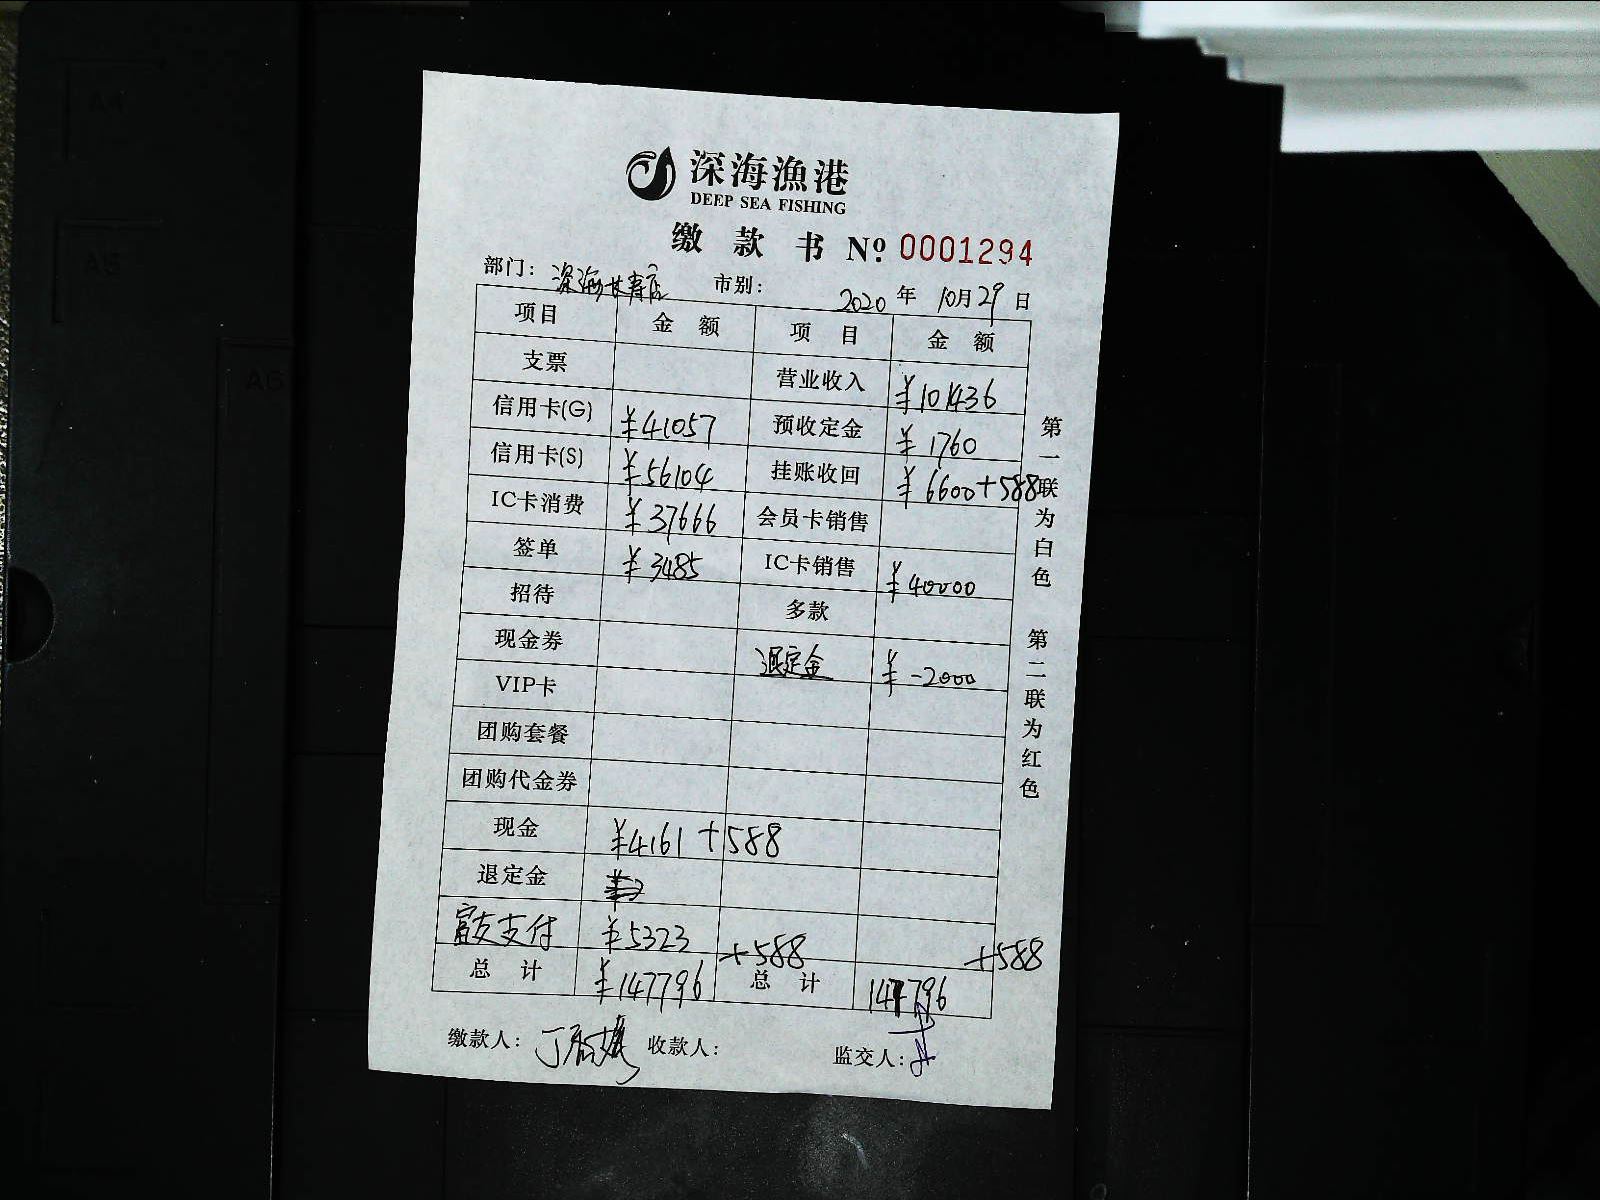 深海漁港
DEEP SEA FISHING
缴款书 № 0001294
部门：深海甘青店 市别： 2020 年 10月 29 日
项目 金额 项目 金额
支票 营业收入 ¥101436
信用卡(G) ¥41057 预收定金 ¥1760
信用卡(S) ¥56104 挂账收回 ¥6600+588
IC卡消费 ¥37666 会员卡销售
签单 ¥3485 IC卡销售 ¥40000
招待 多款
现金券 退定金 ¥-2000
VIP卡
团购套餐
团购代金券
现金 ¥4161 +588
退定金
富友支付 ¥5323
+588 +588
总计 ¥147796 总计 147796
缴款人： 收款人： 监交人：
第一联为白色
第二联为红色